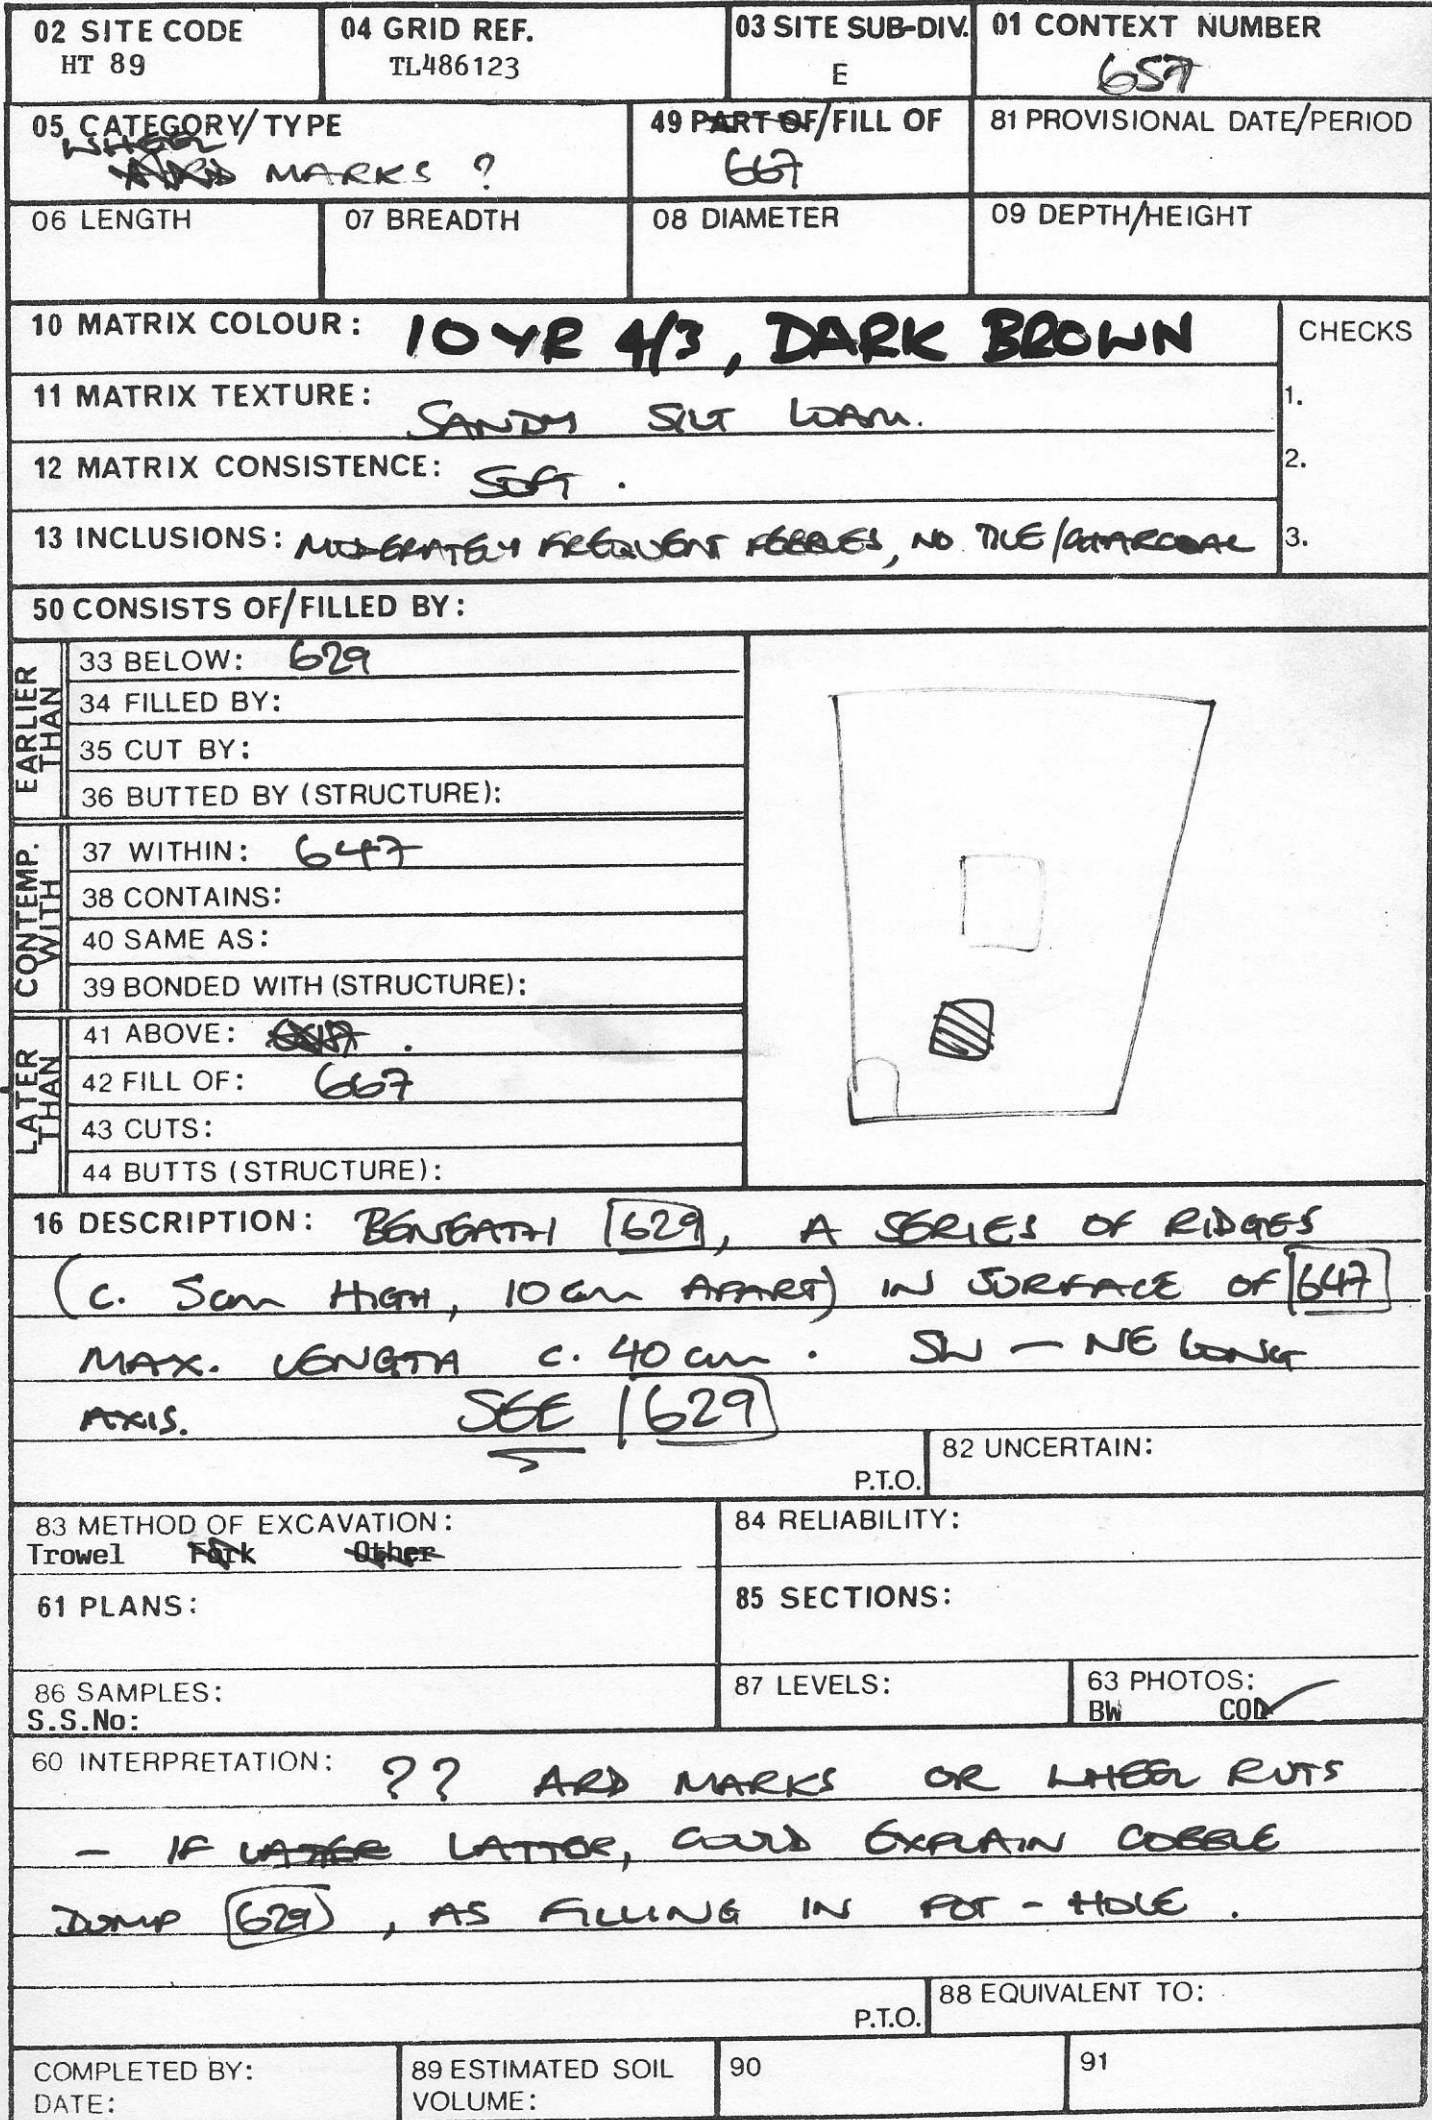 02 SITE CODE
HT 89
04 GRID REF.
TL486123
03 SITE SUB-DIV.
E
01 CONTEXT NUMBER
657
05 CATEGORY/TYPE
WHEEL
ARD MARKS ?
49 PART OF/FILL OF
667
81 PROVISIONAL DATE/PERIOD
06 LENGTH
07 BREADTH
08 DIAMETER
09 DEPTH/HEIGHT
10 MATRIX COLOUR: 10 YR 4/3, DARK BROWN
CHECKS
11 MATRIX TEXTURE: SANDY SILT LOAM.
1.
12 MATRIX CONSISTENCE: SOFT.
2.
13 INCLUSIONS: MODERATELY FREQUENT PEBBLES, NO TILE/CHARCOAL
3.
50 CONSISTS OF/FILLED BY:
EARLIER THAN
33 BELOW: 629
34 FILLED BY:
35 CUT BY:
36 BUTTED BY (STRUCTURE):
CONTEMP. WITH
37 WITHIN: 647
38 CONTAINS:
40 SAME AS:
39 BONDED WITH (STRUCTURE):
LATER THAN
41 ABOVE: .
42 FILL OF: 667
43 CUTS:
44 BUTTS (STRUCTURE):
16 DESCRIPTION: BENEATH 629, A SERIES OF RIDGES
(c. 5cm HIGH, 10cm APART) IN SURFACE OF 647
MAX. LENGTH c. 40 cm. SW - NE LONG
AXIS. SEE 629
P.T.O.
82 UNCERTAIN:
83 METHOD OF EXCAVATION:
Trowel Fork Other
84 RELIABILITY:
61 PLANS:
85 SECTIONS:
86 SAMPLES:
S.S.No:
87 LEVELS:
63 PHOTOS:
BW COL
60 INTERPRETATION: ?? ARD MARKS OR WHEEL RUTS
- IF LATER LATTER, COULD EXPLAIN COBBLE
DUMP 629, AS FILLING IN POT-HOLE.
P.T.O.
88 EQUIVALENT TO:
COMPLETED BY:
DATE:
89 ESTIMATED SOIL
VOLUME:
90
91